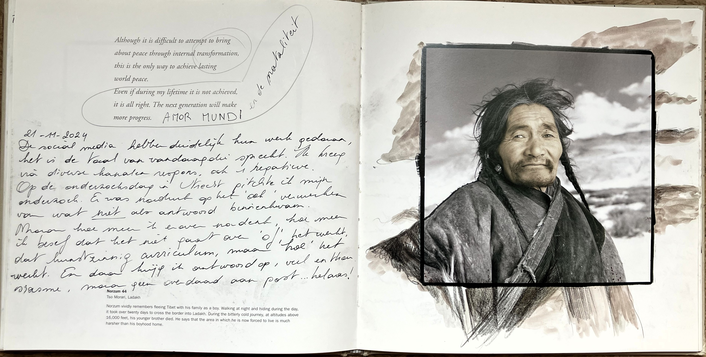 Although it is difficult to attempt to bring
about peace through internal transformation,
this is the only way to achieve lasting
world peace.
Even if during my lifetime it is not achieved,
it is all right. The next generation will make
more progress. AMOR MUNDI
en de nataliteit
21-11-2024
De social media hebben duidelijk hun werk gedaan,
het is de taal van vandaag die spreekt. Ik kreeg
via diverse kanalen respons, ook 1 negatieve.
Op de onderzoeksdag in Utrecht pitchte ik mijn
onderzoek. Er was nadruk op het verwerken
van wat niet als antwoord binnenkwam.
hoe meer ik erover nadenk, hoe meer
ik besef dat het niet gaat over 'of' het werkt,
dat kunstzinnig curriculum, maar 'hoe' het
werkt. En daar krijg ik antwoord op, veel
maar geen overdaad aan post... helaas!
Norzom 44
Tso Morari, Ladakh
Norzom vividly remembers fleeing Tibet with his family as a boy. Walking at night and hiding during the day,
it took over twenty days to cross the border into Ladakh. During the bitterly cold journey, at altitudes above
16,000 feet, his younger brother died. He says that the area in which he is now forced to live is much
harsher than his boyhood home.